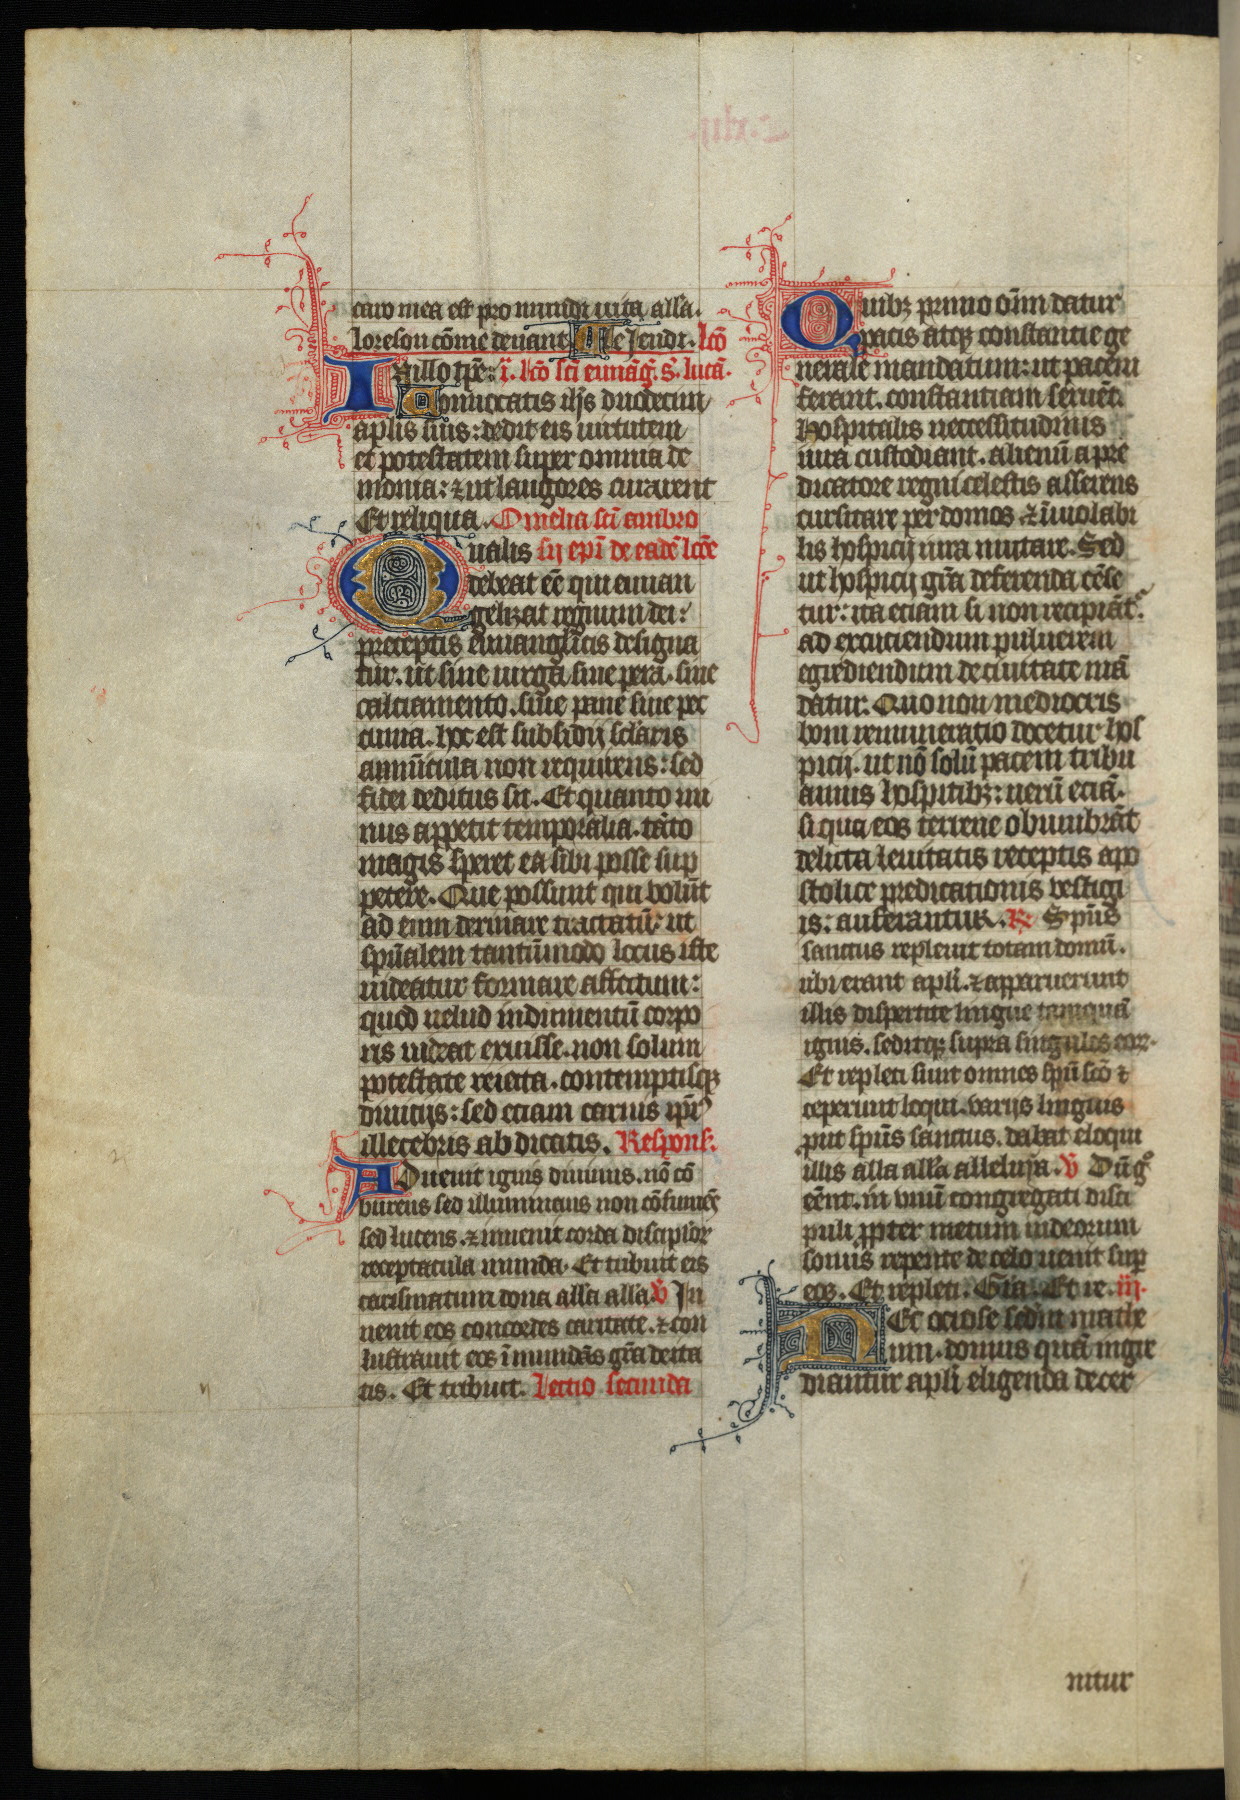 caro mea est pro mundi uita alla.
loreson cōme deuant Te deudt. lcō
In illo tp̄e: i. lcō sci euuāg. s. lucā.
Conuocatis ihs duodecim
aplis suis: dedit eis uirtutem
et potestatem super omnia de
monia: ⁊ ut langores curarent
Et reliqua. Omelia sci ambro
Qualis sij epi de eadē lcōe
debeat eē qui euuan
gelizat regnum dei:
preceptis euuanglicis designa
tur. ut sine uirga sine pera. sine
calciamento. sine pane sine pec
cunia. hoc est subsidij sclaris
amicula non requirens: sed
fidei deditus sit. Et quanto mi
nus appetit temporalia. tāto
magis speret ea sibi posse sup
petere. Que possunt qui volūt
ad eum deriuare tractatū. ut
spūalem tantūmodo locus iste
uideatur formare affectum:
quod uelud indumentū corpo
ris uideat exuisse. non solum
potestate reiecta. contemptisqꝫ
diuitijs: sed etiam carnis ipsi⁹
illecebris abdicatis. Respons.
Aduenit ignis diuinus. nō cō
burens sed illuminans non cōsumēs
sed lucens. ⁊ inuenit corda discipulor
receptacula munda. Et tribuit eis
carismatum dona alla alla. v̄ In
uenit eos concordes caritate. ⁊ con
lustrauit eos īmundās grā deita
tis. Et tribuit. Lectio secunda
Quibꝫ primo oīm datur
pacis atqꝫ constantie ge
nerale mandatum: ut pacem
ferant. constantiam seruēt.
hospitalis neccessitudinis
iura custodiant. alienū a pre
dicatore regni celestis asserens
cursitare per domos ⁊ īuiolabi
lis hospicij iura mutare. Sed
ut hospicij grā deferenda cēse
tur: ita etiam si non recipiāt⁹.
ad excuciendum puluerem
egrediendum de ciuitate mā
datur. Quo non mediocris
boni remuneratio docetur hos
picij. ut nō solū pacem tribu
amus hospitibꝫ: uerū eciā.
si qua eos terrene obumbrāt
delicta leuitatis receptis apo
stolice predicationis vestigi
is: auferantur. R̄ Spūs
sanctus repleuit totam domū.
ubi erant apli. ⁊ apparuerunt
illis dispertite lingue tamquā
ignis. seditqꝫ supra singulos eor.
Et repleti sunt omnes spū scō ⁊
ceperunt loqui. varijs linguis
put spūs sanctus. dabat eloqui
illis alla alla alleluja. v̄ Dū g⁰
eēnt. in vnū congregati disci
puli ppter metum iudeorum
sonus repente de celo uenit sup
eos. Et repleti. Gl̄a. Et re. iij.
Nec ociose sedm mathe
um. domus quā ingre
diantur apli eligenda decer
nitur